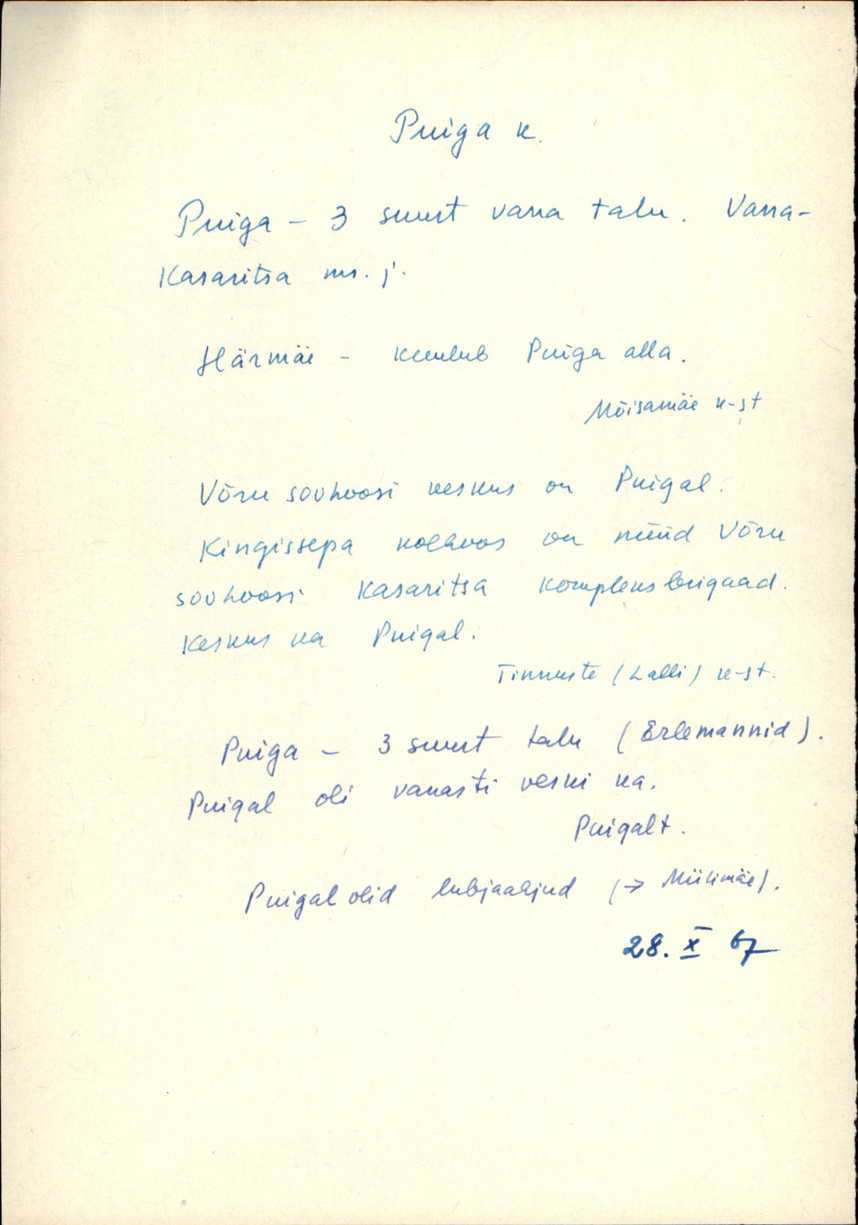 Puiga k.
Puiga - 3 suurt vana talu. Vana-
Kasaritsa ms. j.
Härmäe - kuulub Puiga alla.
Mõisamäe k-st
Võru sovhoosi keskus on Puigal.
Kingissepa kolhoos on nüüd Võru
sovhoosi Kasaritsa kompleksbrigaad.
Keskus ka Puigal.
Tinnuste (Lalli) k-st.
Puiga - 3 suurt talu (Erlemannid).
Puigal oli vanasti veski ka.
Puigalt.
Puigal olid lubjaahjud (→ Miilimäe).
28. X 67